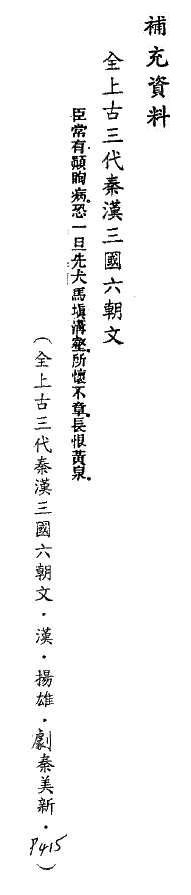 補充資料
全上古三代秦漢三國六朝文
臣常有顛眴病。恐一旦先犬馬塡溝壑。所懷不章。長恨黃泉。
（全上古三代秦漢三國六朝文．漢．揚雄．劇秦美新．P415）